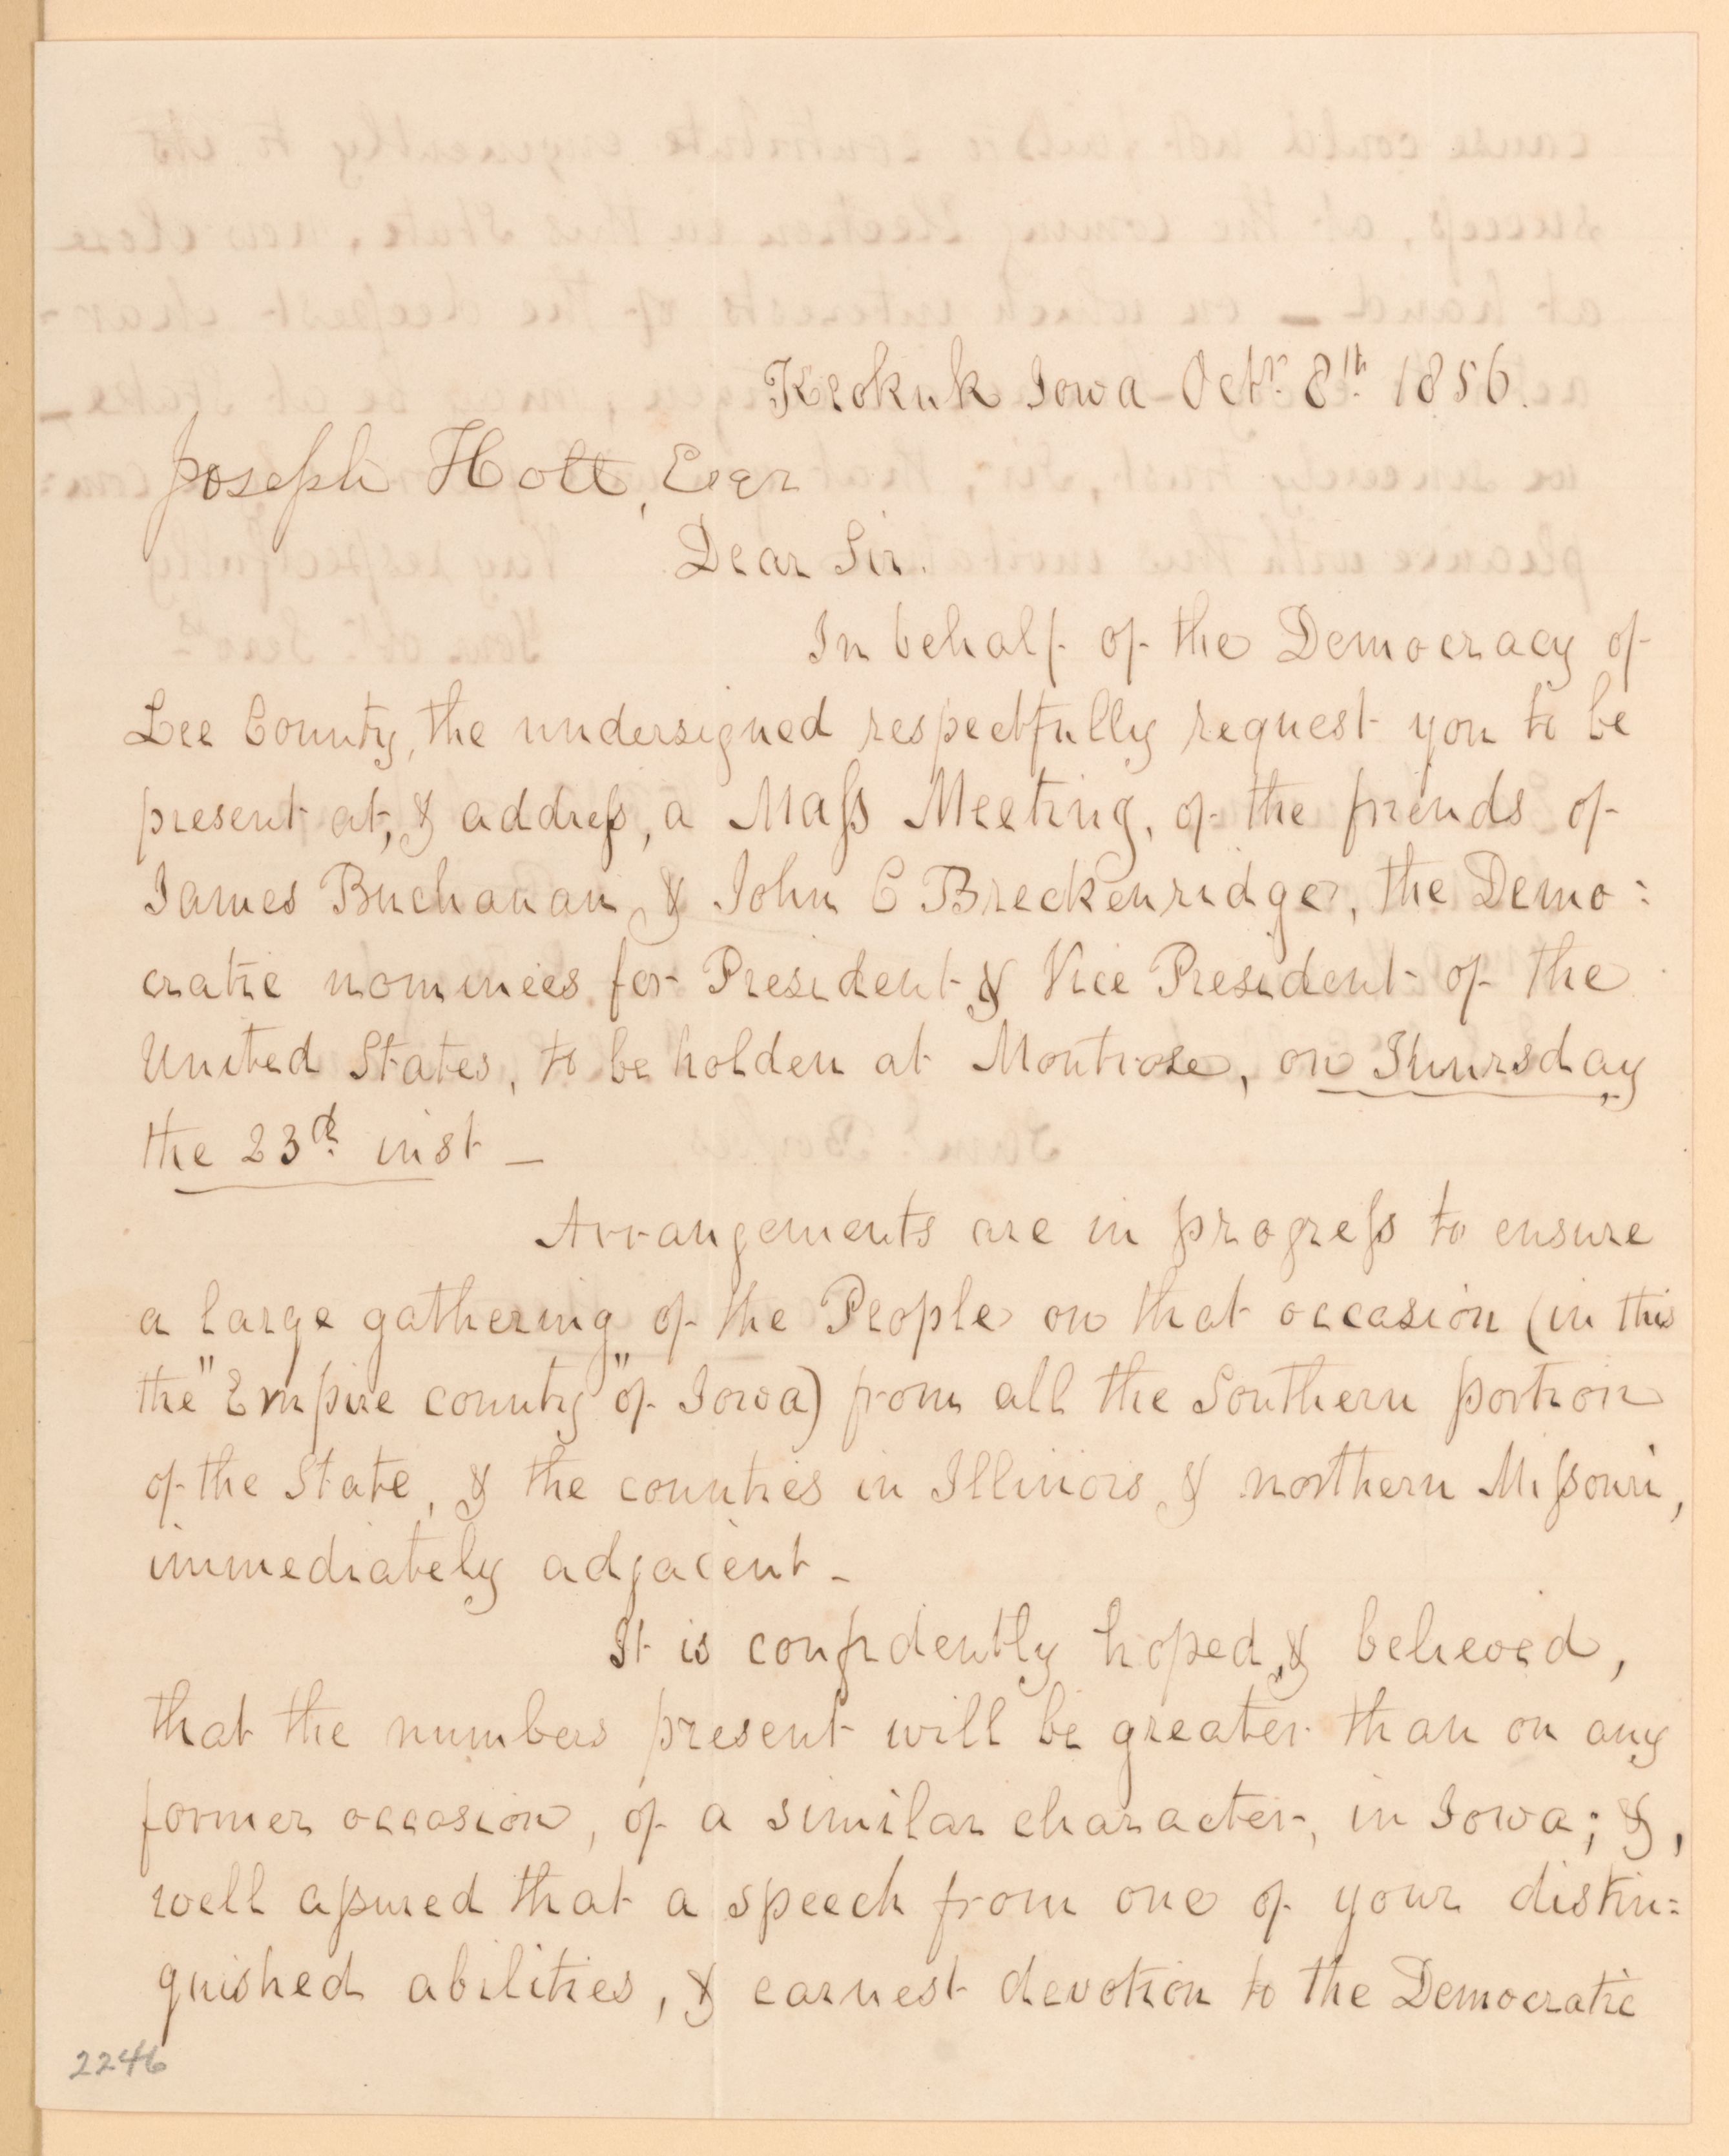 Keokuk Iowa Octr. 8th. 1856.
Joseph Holt, Esqr
Dear Sir.
In behalf of the Democracy of
Lee County, the undersigned respectfully request you to be
present at, & address, a Mass Meeting, of the friends of
James Buchanan & John C Breckenridge, the Demo:
cratic nominees for President & Vice President of the
United States, to be holden at Montrose, on Thursday
the 23d. inst —
Arrangements are in progress to ensure
a large gathering of the People on that occasion (in this
the "Empire county" of Iowa) from all the Southern portion
of the State, & the counties in Illinois & northern Missouri,
immediately adjacent —
It is confidently hoped, & believed,
that the numbers present will be greater than on any
former occasion, of a similar character, in Iowa; &,
well assured that a speech from one of your distin:
guished abilities, & earnest devotion to the Democratic
2246